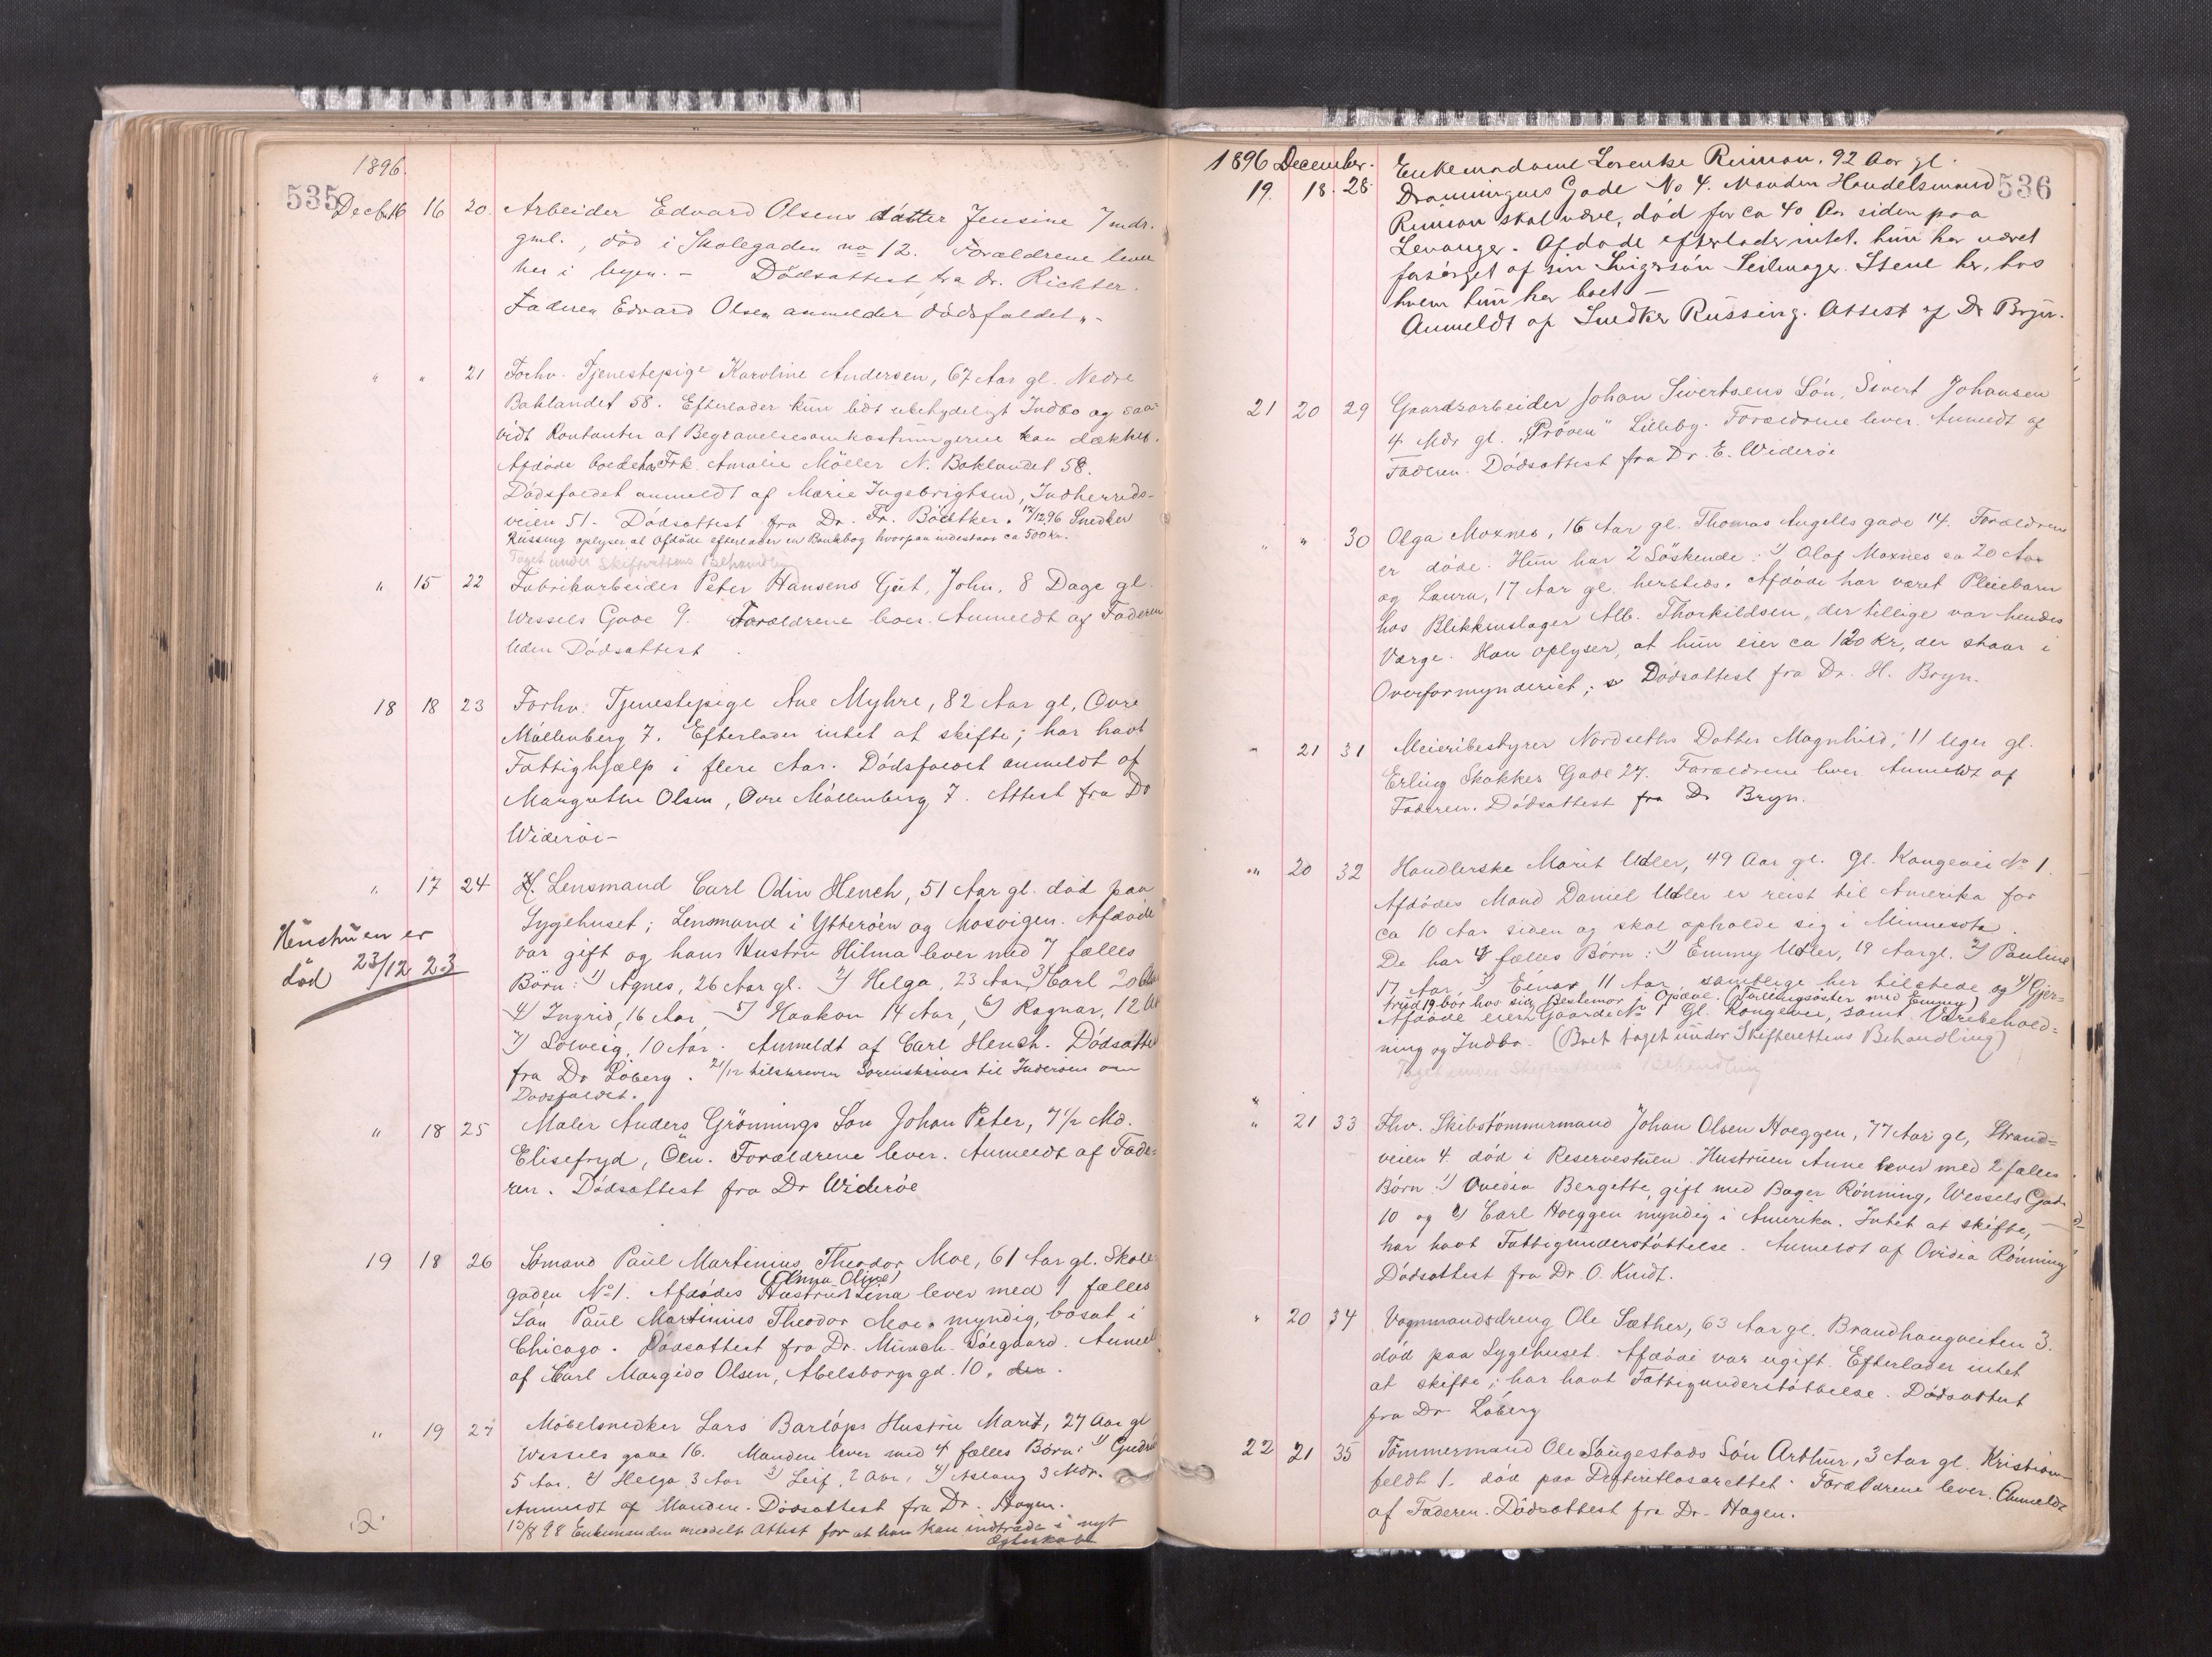 1896.
535
Decbr 16 16 20. Arbeider Edvard Olsens datter Jensine 7 mdr.
gml., död i Skolegaden no 12. Forældrene lever
her i byen. - Dödsattest fra Dr. Richter.
Faderen Edvard Olsen anmelder dödsfaldet. -
" " 21 Forhv. Tjenestepige Karoline Andersen, 67 Aar gl. Nedre
Baklandet 58. Efterlader kun lidt ubetydeligt Indbo og saa-
vidt Kontanter at Begravelsesomkostningerne kan dækkes.
Afdöde boede hos Frk. Amalie Möller N. Baklandet 58.
Dödsfaldet anmeldt af Marie Ingebrigtsen, Indherreds-
veien 51. Dödsattest fra Dr. Fr. Böetker. 17/12 96 Snedker
Rüssing oplyser at Afdöde efterlader en Bankbog hvorpaa indestaar ca 500 kr.
Taget under Skifterettens Behandling
" 15 22 Fabrikarbeider Peter Hansens Gut, John, 8 Dage gl.
Wessels Gade 9. Forældrene lever. Anmeldt af Faderen
Uden Dödsattest.
18 18 23 Forhv. Tjenestepige Ane Myhre, 82 Aar gl, Övre
Möllenberg 7. Efterlader intet at skifte; har havt
Fattighjælp i flere Aar. Dödsfaldet anmeldt af
Margrethe Olsen, Övre Möllenberg 7. Attest fra Dr
Wideröe -
" 17 24 H. Lensmand Carl Odin Hench, 51 Aar gl. död paa
Sygehuset; Lensmand i Ytteröen og Mosvigen. Afdöde
var gift og hans Hustru Hilma lever med 7 fælles
Börn: 1) Agnes, 26 Aar gl. 2) Helga, 23 Aar, 3) Carl 20 Aar
4) Ingrid, 16 Aar, 5) Haakon 14 Aar, 6) Ragnar, 12 Aar
7) Solveig, 10 Aar. Anmeldt af Carl Hench. Dödsattest
fra Dr Löberg. 21/12 tilskreven Sorenskriver til Inderöen om
Dödsfaldet.
Hüstrüen er
död 23/12 23
" 18 25 Maler Anders Grönnings Sön Johan Peter, 7 1/2 Md.
Elisefryd, Öen. Forældrene lever. Anmeldt af Fade-
ren. Dödsattest fra Dr Wideröe
19 18 26 Sömand Paul Martinius Theodor Moe, 61 Aar gl. Skole-
(Anna Oline)
gaden No 1. Afdödes Hustru Lina lever med 1 fælles
Sön Paul Martinius Theodor Moe, myndig, bosat i
Chicago. Dödsattest fra Dr. Münch-Söegaard. Anmel
af Carl Margido Olsen, Abelsborgs gd. 10.
" 19 27 Möbelsnedker Lars Barlöps Hustru Marit, 27 Aar gl
Wessels gade 16. Manden lever med 4 fælles Börn: 1) Gudrun
5 Aar, 2) Helga 3 Aar 3) Leif 2 Aar, 4) Aslaug 3 Mdr.
Anmeldt af Manden. Dödsattest fra Dr. Hagen.
13/8 98 Enkemanden meddelt Attest for at han kan indtræde i nyt
Ægteskab
1896 December. 536
19. 18. 28. Enkemadame Lorentze Reinson, 92 Aar gl.
Dronningens Gade No 4. Manden Handelsmand
Reinson skal være död for ca 40 Aar siden paa
Levanger. Afdöde efterlader intet. Hun har været
forsörget af sin Svigersön Seilmager Stene her, hos
hvem hun har boet -
Anmeldt af Snedker Rüssing. Attest af Dr Bryn.
21 20 29 Gaardsarbeider Johan Sivertsens Sön, Sivert Johansen
4 Mdr gl. "Pröven" Lilleby. Forældrene lever. Anmeldt af
Faderen. Dödsattest fra Dr. E. Wideröe
" " 30 Olga Moxnes, 16 Aar gl. Thomas Angells gade 14. Forældrene
er döde. Hun har 2 Söskende: 1) Olaf Moxnes ca 20 Aar
og Laura, 17 Aar gl. herstedes. Afdöde har været Pleiebarn
hos Blikkenslager Alb. Thorkildsen, der tillige var hendes
Værge. Han oplyser, at hun eier ca 120 Kr, der staar i
Overformynderiet; Dödsattest fra Dr. H. Bryn.
" 21 31 Meieribestyrer Nordseths Datter Magnhild, 11 Uger gl.
Erling Skakkes Gade 27. Forældrene lever. Anmeldt af
Faderen. Dödsattest fra Dr Bryn.
" 20 32 Handlerske Marit Udler, 49 Aar gl. Gl. Kongevei No 1.
Afdödes Mand Daniel Udler er reist til Amerika for
ca 10 Aar siden og skal opholde sig i Minnesota.
De har 4 fælles Börn: 1) Emmy Udler, 19 Aar gl. 2) Pauline
17 Aar, 3) Einar 11 Aar, samtlige her tilstede og 4) Gjer-
trud 19 bor hos sin Bestemor i Opdal. (Tvillingsöster med Emmy)
Afdöde eier Gaarde No 1 Gl. Kongevei, samt Varebehold-
ning og Indbo. (Boet taget under Skifterettens Behandling)
Taget under Skifterettens Behandling
" 21 33 Fhv. Skibstömmermand Johan Olsen Hoeggen, 77 Aar gl, Strand-
veien 4. död i Reservestuen. Hustruen Anne lever med 2 fælles
Börn 1) Ovedia Bergette, gift med Bager Rönning, Wessels Gade
10 og 2) Carl Hoeggen myndig i Amerika. Intet at skifte,
har havt Fattigunderstöttelse. Anmeldt af Ovidia Rönning
Dödsattest fra Dr. O. Kindt.
" 20 34 Vognmandsdreng Ole Sæther, 63 Aar gl. Brandhaugveiten 3.
död paa Sygehuset. Afdöde var ugift. Efterlader intet
at skifte; har havt Fattigunderstöttelse. Dödsattest
fra Dr Löberg
22 21 35 Tömmermand Ole Saugestads Sön Arthur, 3 Aar gl. Kristian-
feldt 1. död paa Defteritlasarettet. Forældrene lever. Anmeldt
af Faderen. Dödsattest fra Dr. Hagen.